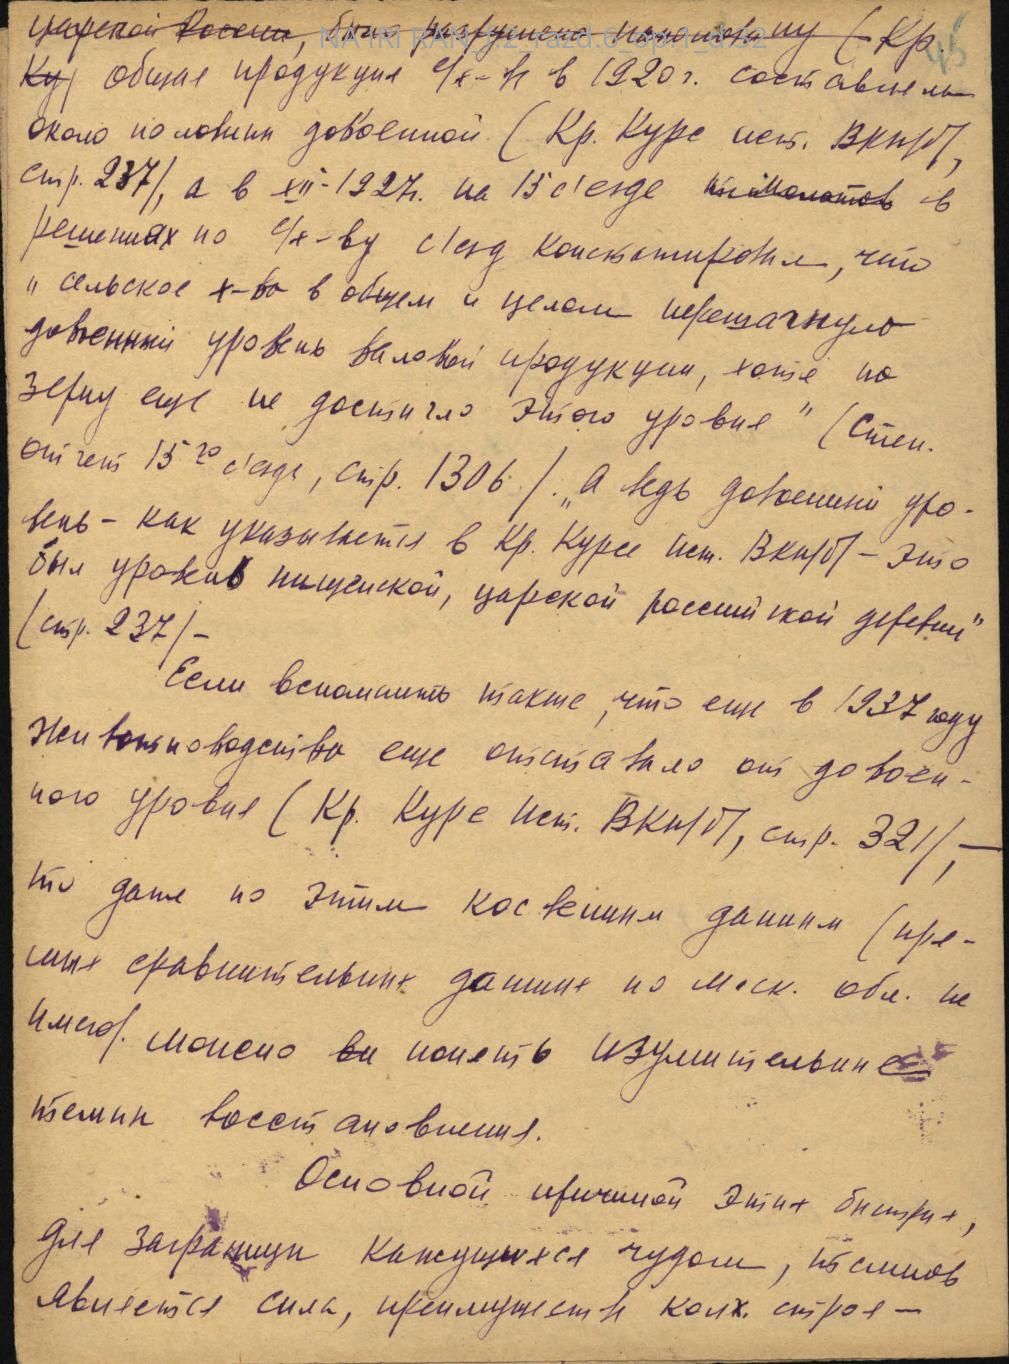 царской России, было разрушено наполовину (Кр.
Ку) общая продукция с/х-ва в 1920 г. составляла
около половины довоенной (Кр. Курс ист. ВКП/б/,
стр. 237/, а в XII-1927 г. на 15 с'езде Молотов в
решениях по с/х-ву с'езд констатировал, что
„сельское х-во в общем и целом перешагнуло
довоенный уровень валовой продукции, хотя по
зерну еще не достигло этого уровня" (Стен.
отчет 15го с'езда, стр. 1306/. „А ведь довоенный уро-
вень - как указывается в Кр. Курсе Ист. ВКП/б/ - это
был уровень нищенской, царской российской деревни"
(стр. 237/ -
Если вспомнить также, что еще в 1937 году
животноводство еще отставало от довоен-
ного уровня (Кр. Курс Ист. ВКП/б/, стр. 321/, -
то даже по этим косвенным данным (пря-
мых сравнительных данных по Моск. обл. не
имею/. можно понять изумительные
темпы восстановления.
Основной причиной этих быстрых,
для заграницы кажущихся чудом, темпов
является сила, преимуществ колх. строя -